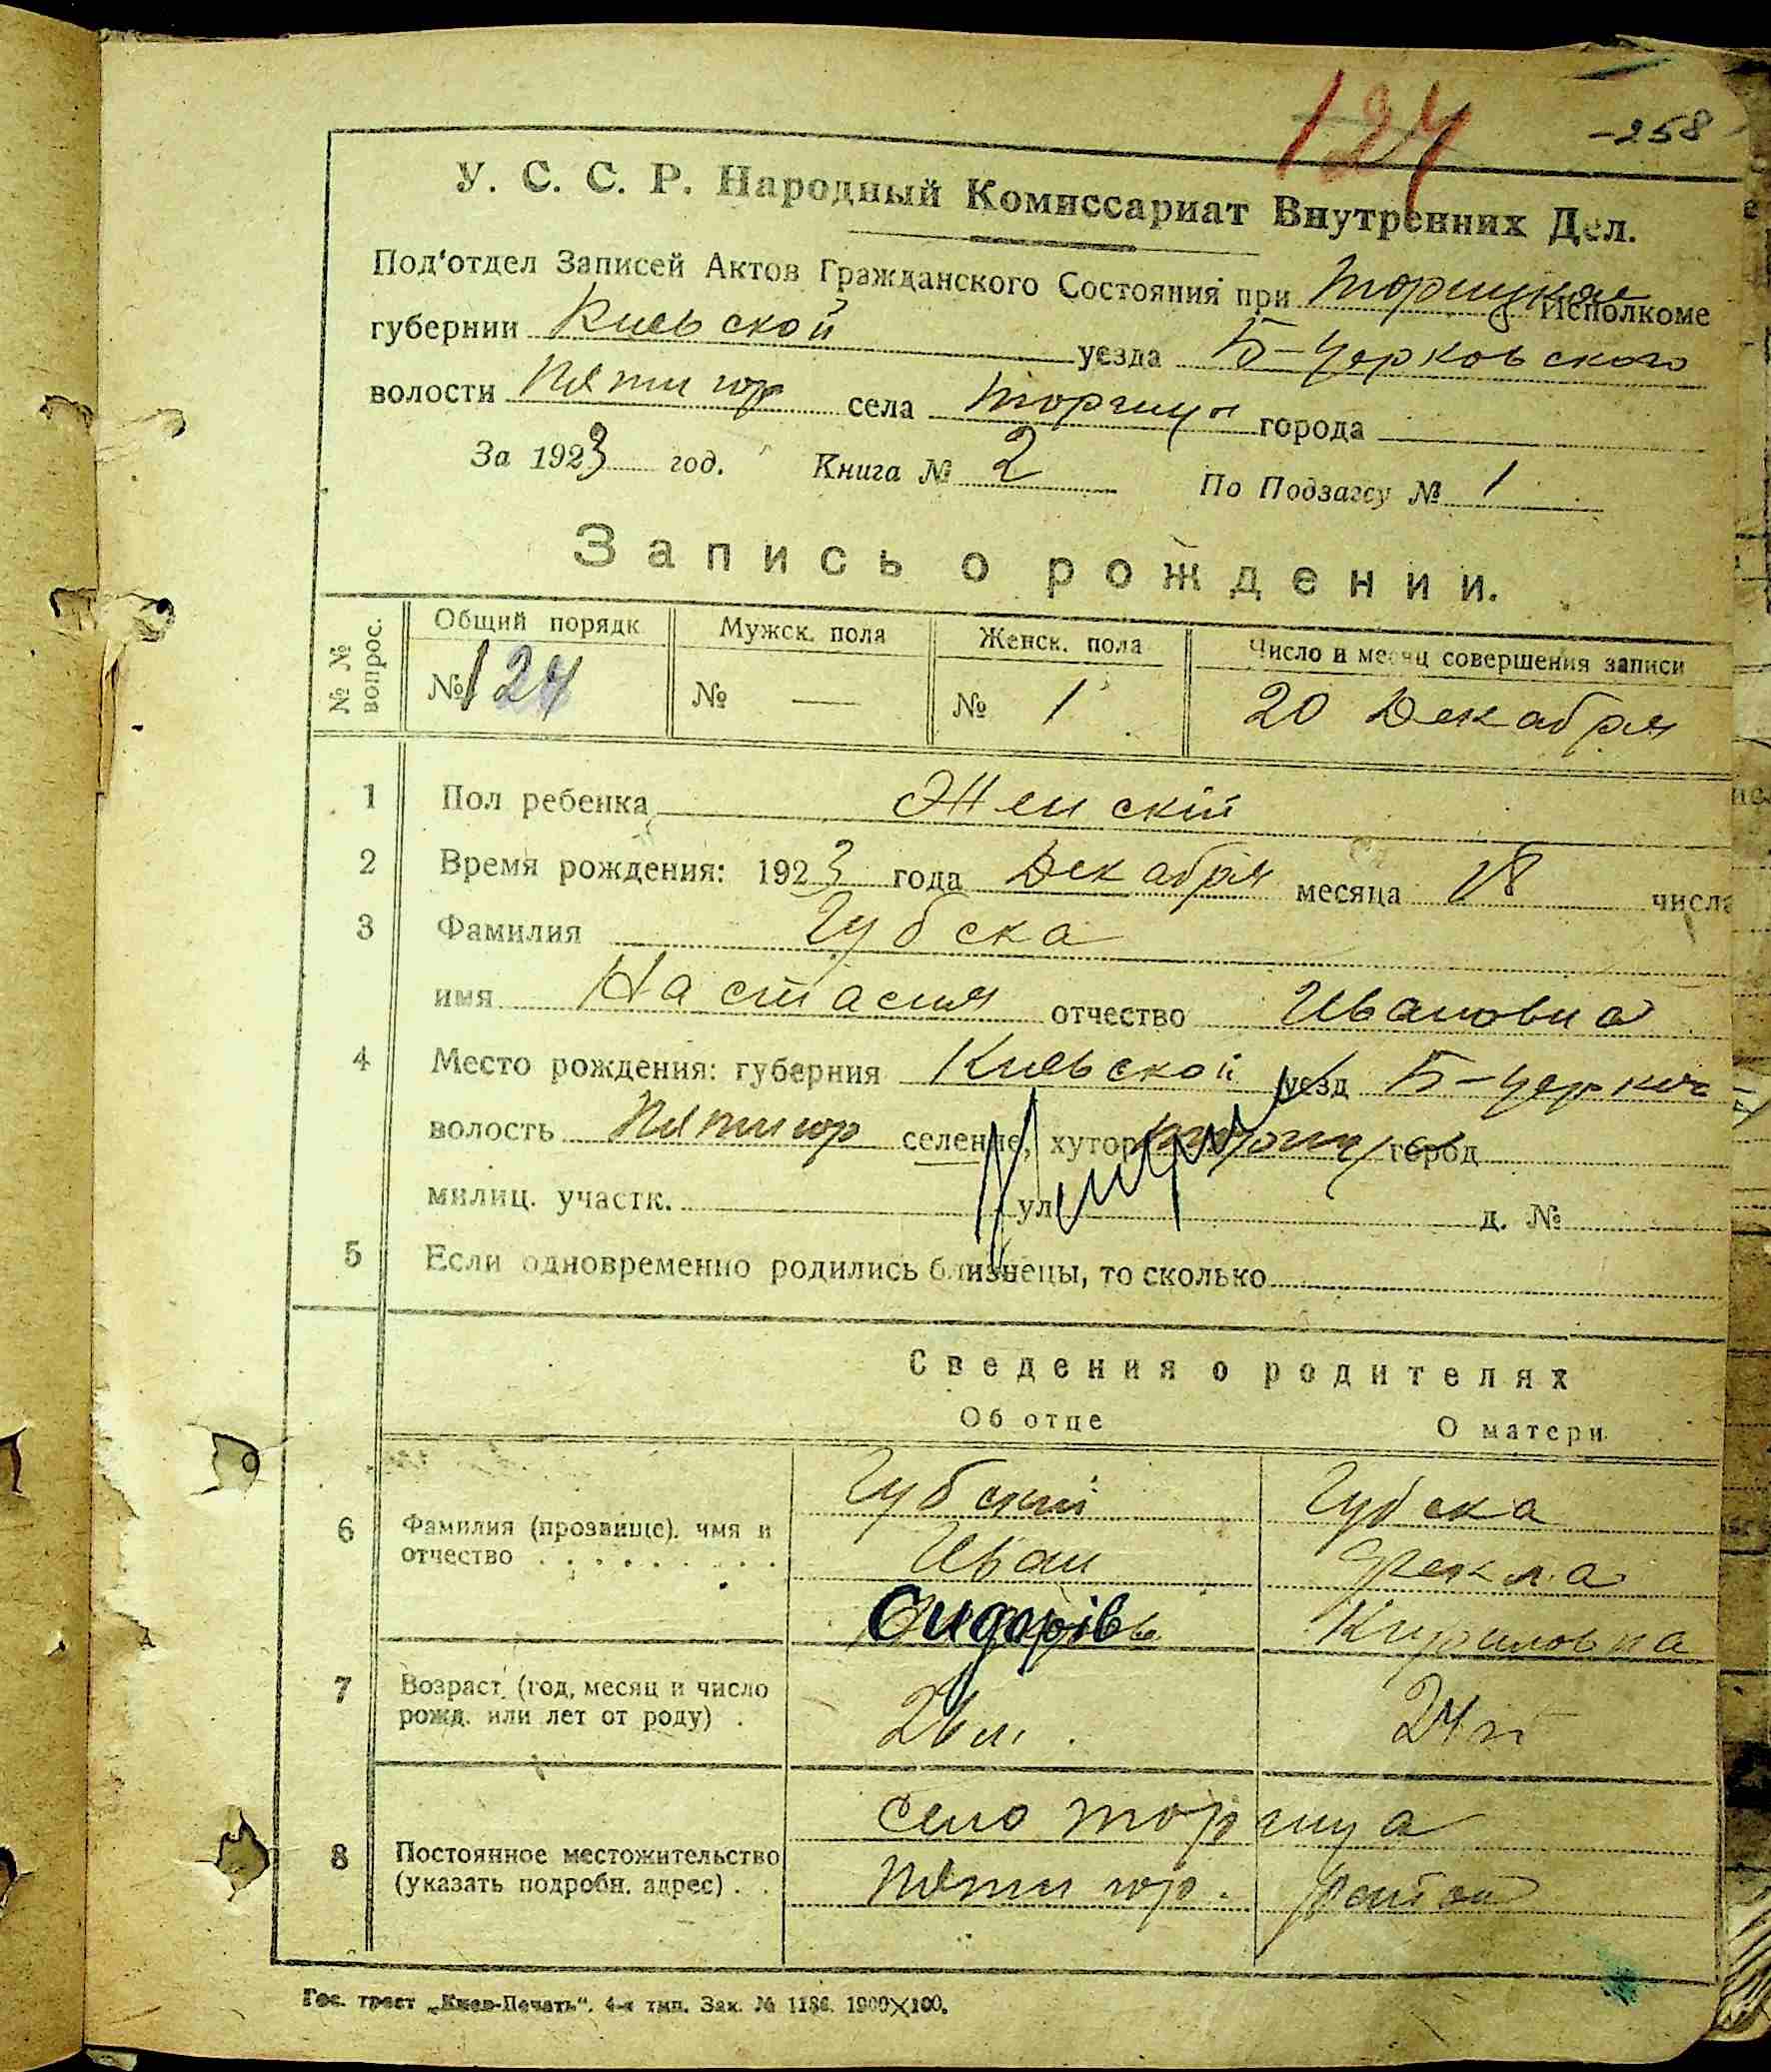 124
-258
У. С. С. Р. Народный Комиссариат Внутренних Дел.
Под‘отдел Записей Актов Гражданского Состояния при Торицком Исполкоме
губернии Киевской уезда Б-Церковского
волости Пятигор села Торчиц города
За 1923 год. Книга № 2 По Подзагсу № 1
Запись о рождении.
№ № вопрос. Общий порядк Мужск. пола Женск. пола Число и месяц совершения записи
№ 124 № — № 1 20 Декабря
1 Пол ребенка Женскій
2 Время рождения: 1923 года Декабря месяца 18 числа
3 Фамилия Губска
имя Настасия отчество Ивановна
4 Место рождения: губерния Киевской уезд Б-Церков
волость Пятигор селение, хутор город
милиц. участк. ул. д. №
5 Если одновременно родились близнецы, то сколько
Сведения о родителях
Об отце О матери
Губский Губска
6 Фамилия (прозвище), имя и
отчество Иван Фекла
Сидорів Кириловна
7 Возраст (год, месяц и число
рожд. или лет от роду) 26 л. 24 л
село Торчица
8 Постоянное местожительство
(указать подробн. адрес) Пятигор. район
Гос. трест „Киев-Печать“. 4-я тип. Зак. № 1186. 1900×100.